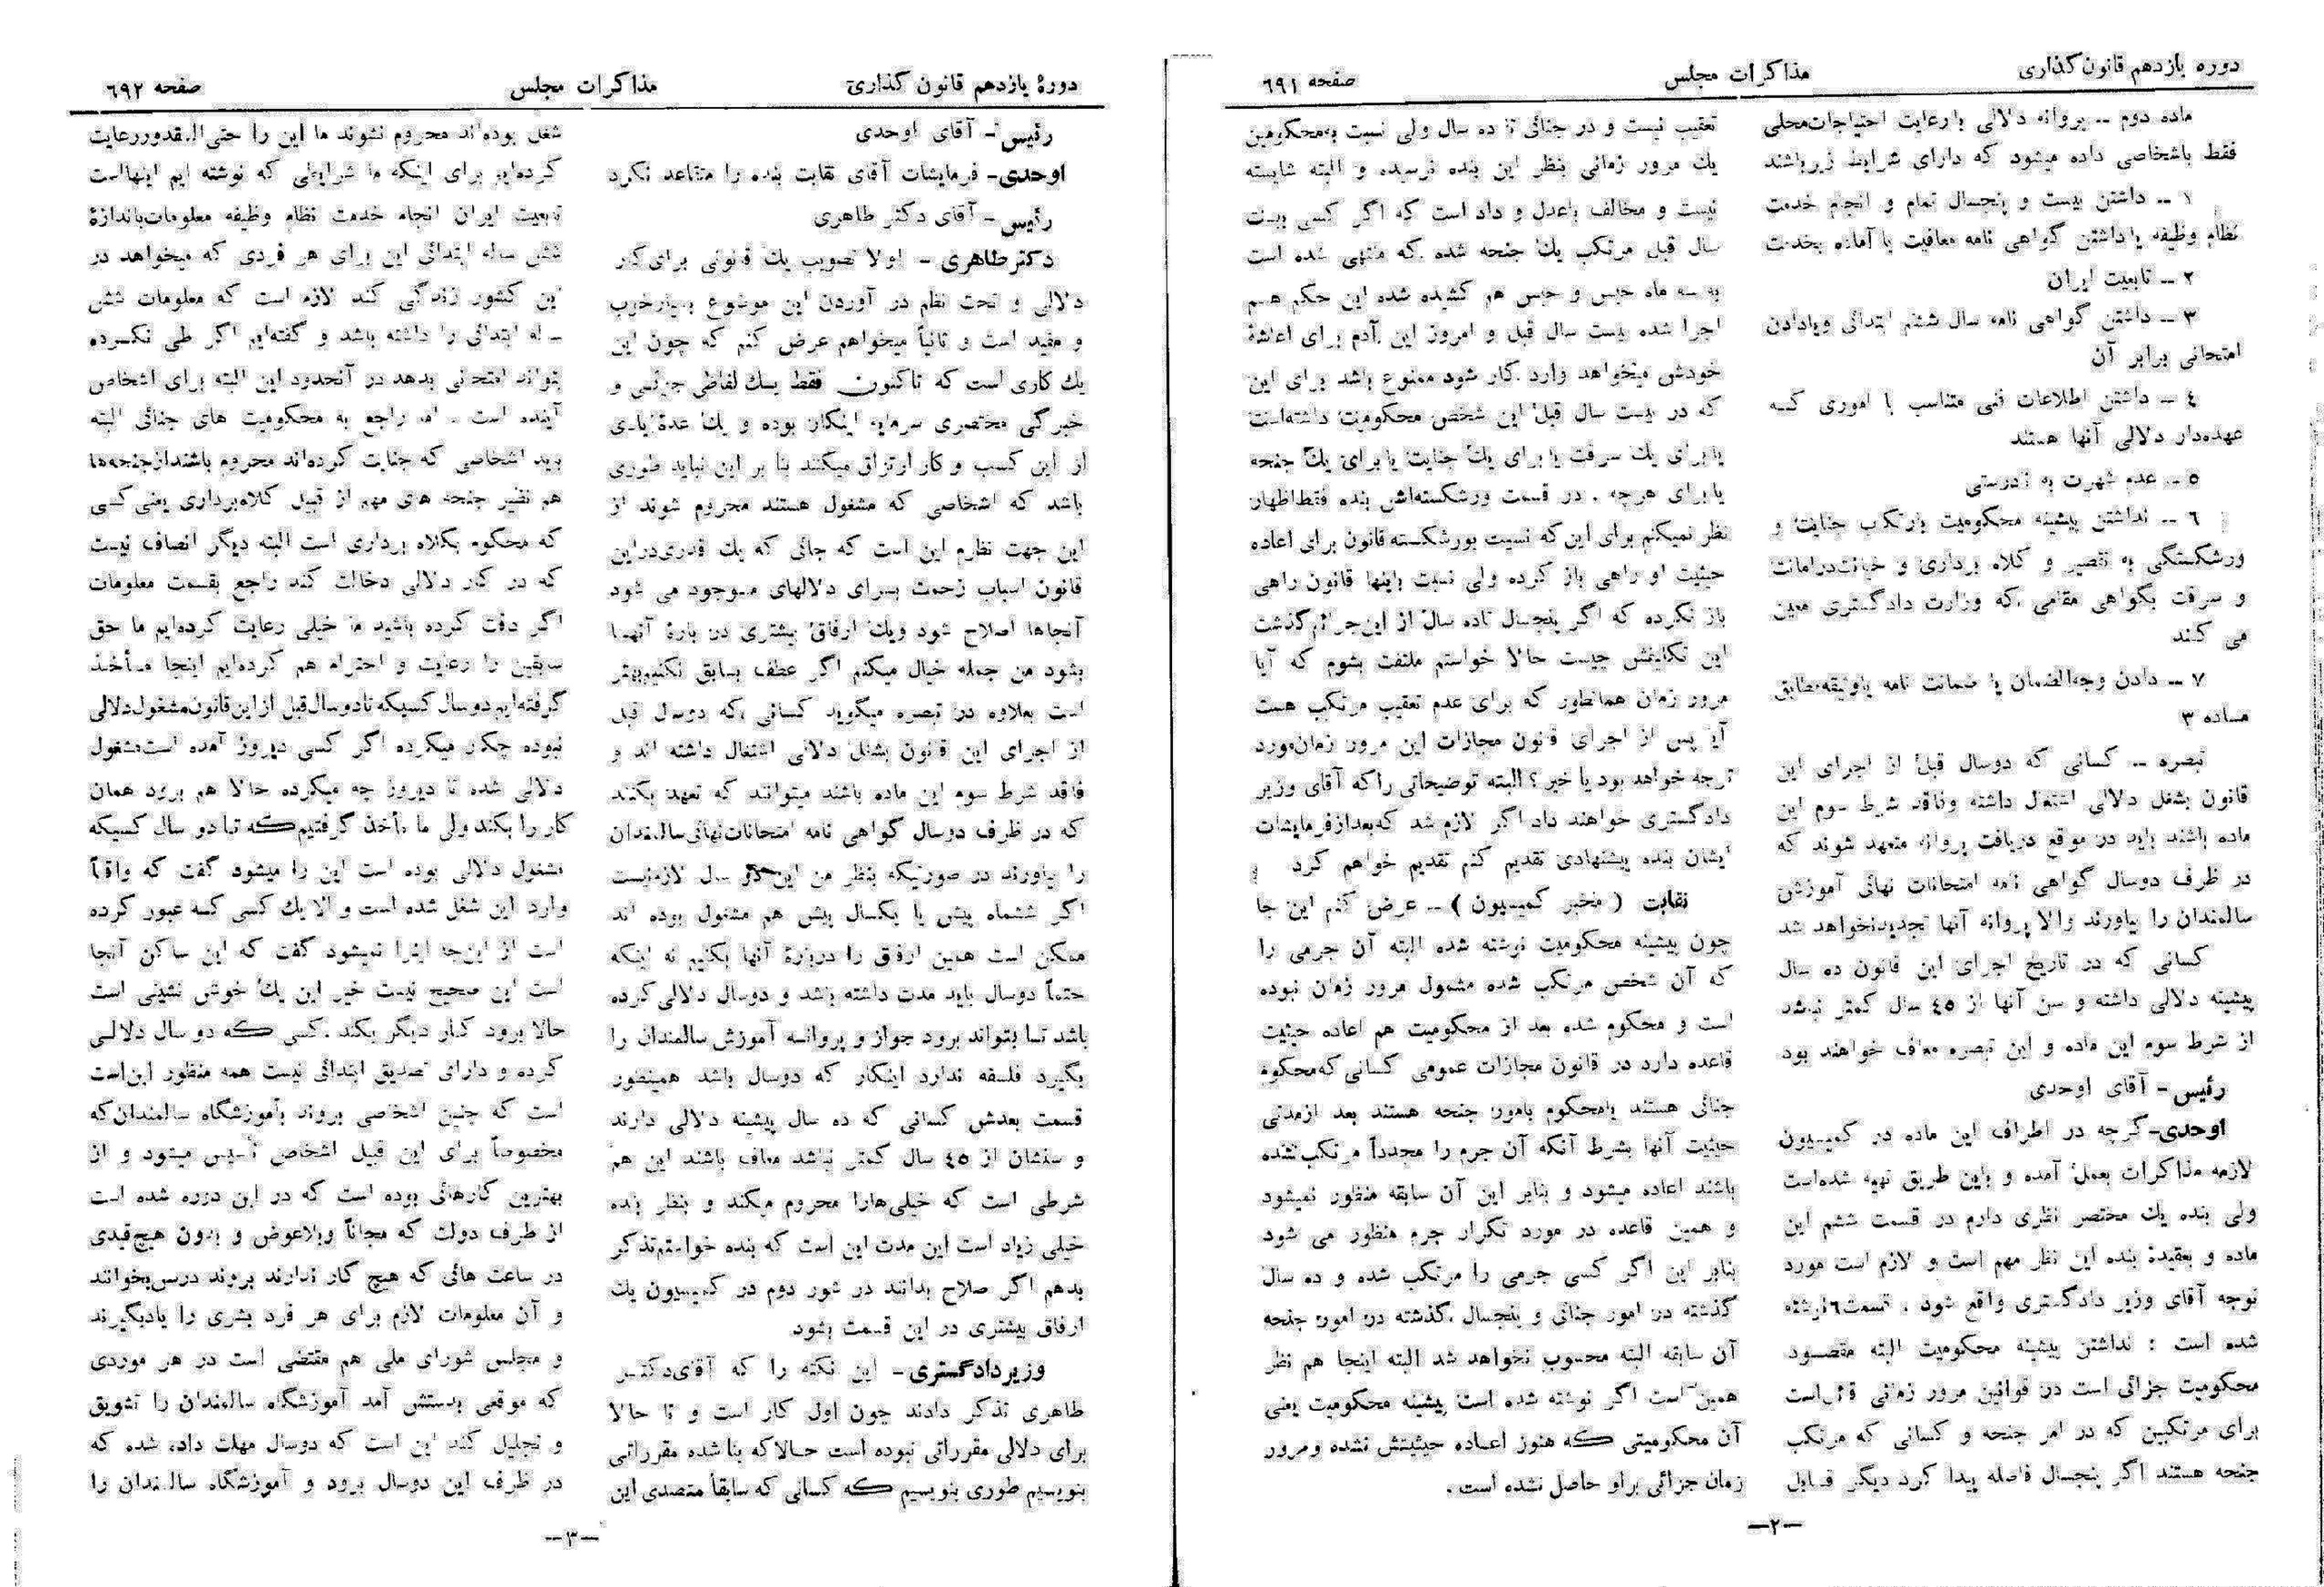 دوره یازدهم قانون‌گذاری
مذاکرات مجلس
صفحه ٦٩١
ماده دوم ــ پروانه دلالی با رعایت احتیاجات‌محلی
فقط باشخاصی داده میشود که دارای شرایط زیرباشند
١ ــ داشتن بیست و پنجسال تمام و انجام خدمت
نظام وظیفه یا داشتن گواهی نامه معافیت یا آماده بخدمت
٢ ــ تابعیت ایران
٣ ــ داشتن گواهی نامه سال ششم ابتدائی ویادادن
امتحانی برابر آن
٤ ــ داشتن اطلاعات فنی متناسب با اموری کـه
عهده‌دار دلالی آنها هستند
٥ ــ عدم شهرت به نادرستی
٦ ــ نداشتن پیشینه محکومیت بارتکاب جنایت و
ورشکستگی به تقصیر و کلاه برداری و خیانت‌درامانت
و سرقت بگواهی مقامی که وزارت دادگستری معین
می کـند
٧ ــ دادن وجه‌الضمان یا ضمانت نامه یاوثیقه‌مطابق
مـاده ٣
تبصره ــ کسانی که دوسال قبل از اجرای این
قانون بشغل دلالی اشتغال داشته وفاقد شرط سوم این
ماده باشند باید در موقع دریافت پروانه متعهد شوند که
در ظرف دوسال گواهی نامه امتحانات نهائی آموزش
سالمندان را بیاورند والا پروانه آنها تجدیدنخواهد شد
کسانی که در تاریخ اجرای این قانون ده سال
پیشینه دلالی داشته و سن آنها از ٤٥ سال کمتر نباشد
از شرط سوم این ماده و این تبصره معاف خواهند بود
رئیس - آقای اوحدی
اوحدی-گرچه در اطراف این ماده در کمیسیون
لازمه مذاکرات بعمل آمده و باین طریق تهیه شده‌است
ولی بنده یك مختصر نظری دارم در قسمت ششم این
ماده و بعقیدهٔ بنده این نظر مهم است و لازم است مورد
توجه آقای وزیر دادگستری واقع شود . قسمت٦نوشته
شده است : نداشتن پیشینه محکومیت البته مقصـود
محکومیت جزائی است در قوانین مرور زمانی قائل‌است
برای مرتکبین که در امر جنحه و کسانی که مرتکب
جنحه هستند اگر پنجسال فاصله پیدا کرد دیگر قـابل
تعقیب نیست و در جنائی تا ده سال ولی نسبت به‌محکومین
یك مرور زمانی بنظر این بنده نرسیده و البته شایسته
نیست و مخالف باعدل و داد است که اگر کسی بیست
سال قبل مرتکب یك جنحه شده که منتهی شده است
به سه ماه حبس و حبس هم کشیده شده این حکم هـم
اجرا شده بیست سال قبل و امروز این آدم برای اعاشهٔ
خودش میخواهد وارد کار شود ممنوع باشد برای این
که در بیست سال قبل این شخص محکومیت داشته‌است
یا برای یك سرقت یا برای یك جنایت یا برای یك جنحه
یا برای هرچه . در قسمت ورشکسته‌اش بنده فقط‌اظهار
نظر نمیکنم برای این‌که نسبت بورشکسته قانون برای اعاده
حیثیت او راهی باز کرده ولی نسبت باینها قانون راهی
باز نکرده که اگر پنجسال تاده سال از این‌جرائم‌گذشت
این تکلیفش چیست حالا خواستم ملتفت بشوم که آیا
مرور زمان همانطور که برای عدم تعقیب مرتکب هست
آیا پس از اجرای قانون مجازات این مرور زمان‌مورد
توجه خواهد بود یا خیر؟ البته توضیحاتی راکه آقای وزیر
دادگستری خواهند داد اگر لازم شد که‌بعدازفرمایشات
ایشان بنده پیشنهادی تقدیم کنم تقدیم خواهم کرد
نقابت ( مخبر کمیسیون ) ــ عرض کنم این جا
چون پیشینه محکومیت نوشته شده البته آن جرمی را
که آن شخص مرتکب شده مشمول مرور زمان نبوده
است و محکوم شده بعد از محکومیت هم اعاده حیثیت
قاعده دارد در قانون مجازات عمومی کسانی که‌محکوم
جنائی هستند یامحکوم بامور جنحه هستند بعد ازمدتی
حیثیت آنها بشرط آنکه آن جرم را مجدداً مرتکب‌نشده
باشند اعاده میشود و بنابر این آن سابقه منظور نمیشود
و همین قاعده در مورد تکرار جرم منظور می شود
بنابر این اگر کسی جرمی را مرتکب شده و ده سال
گذشته در امور جنائی و پنجسال گذشته در امور جنحه
آن سابقه البته محسوب نخواهد شد البته اینجا هم نظر
همین است اگر نوشته شده است پیشینه محکومیت یعنی
آن محکومیتی که هنوز اعـاده حیثیتش نشده ومرور
زمان جزائی براو حاصل نشده است .
—٢—
دورهٔ یازدهم قانون گذاری
مذاکرات مجلس
صفحه ٦٩٢
رئیس - آقای اوحدی
اوحدی- فرمایشات آقای نقابت بنده را متقاعد نکرد
رئیس - آقای دکتر طاهری
دکترطاهری - اولا تصویب یك قانونی برای‌کار
دلالی و تحت نظم در آوردن این موضوع بسیارخوب
و مفید است و ثانیاً میخواهم عرض کنم که چون این
یك کاری است که تاکنون فقط یـك لفاظی جزئـی و
خبرگی مختصری سرمایه اینکار بوده و یك عدهٔ‌زیادی
از این کسب و کار ارتزاق میکنند بنا بر این نباید طوری
باشد که اشخاصی که مشغول هستند محروم شوند از
این جهت نظرم این است که جائی که یك قدری‌دراین
قانون اسباب زحمت بـرای دلالهای مـوجود می شود
آنجاها اصلاح شود ویك ارفاق بیشتری در بارهٔ آنهـا
بشود من جمله خیال میکنم اگر عطف بسابق نکنیم‌بهتر
است بعلاوه در تبصره میگوید کسانی که دوسال قبل
از اجرای این قانون بشغل دلالی اشتغال داشته اند و
فاقد شرط سوم این ماده باشند میتوانند که تعهد بکنند
که در ظرف دوسال گواهی نامه امتحانات‌نهائی‌سالمندان
را بیاورند در صورتیکه بنظر من این دو سال لازم‌نیست
اگر ششماه پیش یا یکسال پیش هم مشغول بوده اند
ممکن است همین ارفاق را دربارهٔ آنها بکنیم نه اینکه
حتماً دوسال باید مدت داشته باشد و دوسال دلالی‌کرده
باشد تـا بتواند برود جواز و پروانـه آموزش سالمندان را
بگیرد فلسفه ندارد اینکار که دوسال باشد همینطور
قسمت بعدش کسانی که ده سال پیشینه دلالی دارند
و سنشان از ٤٥ سال کمتر نباشد معاف باشند این هم
شرطی است که خیلی‌هارا محروم میکند و بنظر بنده
خیلی زیاد است این مدت این است که بنده خواستم‌تذکر
بدهم اگر صلاح بدانند در شور دوم در کمیسیون یك
ارفاق بیشتری در این قسمت بشود
وزیردادگستری- این نکته را که آقای‌دکتـر
طاهری تذکر دادند چون اول کار است و تا حالا
برای دلالی مقرراتی نبوده است حـالاکه بنا شده مقرراتی
بنویسیم طوری بنویسیم که کسانی که سابقاً متصدی این
شغل بوده‌اند محروم نشوند ما این را حتی‌المقدوررعایت
کرده‌ایم برای اینکه ما شرایطی که نوشته ایم اینهااست
تابعیت ایران انجام خدمت نظام وظیفه معلومات‌باندازهٔ
شش ساله ابتدائی این برای هر فردی که میخواهد در
این کشور زندگی کند لازم است که معلومات شش
ساله ابتدائی را داشته باشد و گفته‌ایم اگر طی نکـرده
بتواند امتحانی بدهد در آنحدود این البته برای اشخاص
آینده است . اما راجع به محکومیت های جنائی البته
باید اشخاصی که جنایت کرده‌اند محروم باشندازجنحه‌ها
هم نظیر جنحه های مهم از قبیل کلاه‌برداری یعنی کسی
که محکوم بکلاه برداری است البته دیگر انصاف نیست
که در کار دلالی دخالت کند راجع بقسمت معلومات
اگر دقت کرده باشید ما خیلی رعایت کرده‌ایم ما حق
سابقین را رعایت و احترام هم کرده‌ایم اینجا مـأخـذ
گرفته‌ایم دو سال کسیکه تادوسال‌قبل از این‌قانون‌مشغول‌دلالی
نبوده چکار میکرده اگر کسی دیروز آمده است‌مشغول
دلالی شده تا دیروز چه میکرده حالا هم برود همان
کار را بکند ولی ما مأخذ گرفتیم که تـا دو سال کسیکه
مشغول دلالی بوده است این را میشود گفت که واقعاً
وارد این شغل شده است و الا یك کسی کـه عبور کرده
است از این‌جا اینرا نمیشود گفت که این ساکن آنجا
است این صحیح نیست خیر این یك خوش نشینی است
حالا برود کـار دیگر بکند .کسی که دو سال دلالـی
کرده و دارای تصدیق ابتدائی نیست همه منظور این‌است
است که چنین اشخاصی بروند بآموزشگاه سالمندان‌که
مخصوصاً برای این قبیل اشخاص تأسیس میشود و از
بهترین کارهائی بوده است که در این دوره شده است
از طرف دولت که مجاناً وبلاعوض و بدون هیچ‌قیدی
در ساعت هائی که هیچ کار ندارند بروند درس‌بخوانند
و آن معلومات لازم برای هر فرد بشری را یادبگیرند
و مجلس شورای ملی هم مقتضی است در هر موردی
که موقعی بدستش آمد آموزشگاه سالمندان را تشویق
و تجلیل کند این است که دوسال مهلت داده شده که
در ظرف این دوسال برود و آموزشگاه سالمندان را
—٣—